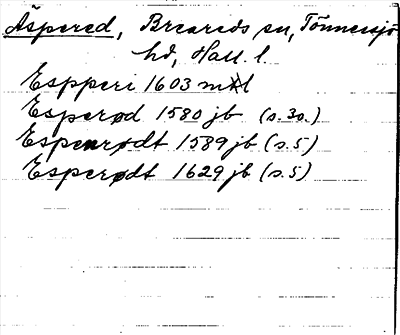 Äspered, Breareds sn, Tönnersjö
hd, Hall. l.
Espperi 1603 mtl
Esperød 1580 jb (s. 30.)
Esperrødt 1589 jb (s. 5)
Esperødt 1629 jb (s. 5)